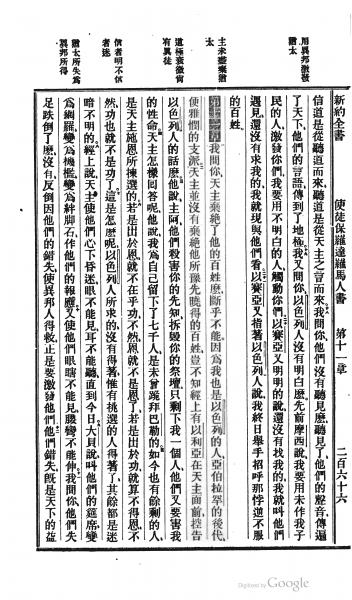 新約全書 使徒保羅達羅馬人書 第十一章 二百六十六
用異邦激發猶太
信道是從聽道而來聽道是從天主之言而來我問你他們沒有聽見麽聽見了他們的聲音傳遍
了天下他們的言語傳到了地極我又問你以色列人沒有明白麽先前摩西說我要用未作我子
民的人激發你們我要用不明白的人觸動你們以賽亞又明明的說還沒有找我的我就叫他們
遇見還沒有求我的我就現與他們看以賽亞又指著以色列人說我終日舉手招呼那悖逆不服
的百姓
主未盡棄猶太
第十一章我問你天主棄絕了他的百姓麽斷乎不能因為我也是以色列的人亞伯拉罕的後代
便雅憫的支派天主並沒有棄絕他所豫先曉得的百姓豈不知經上有以利亞在天主面前控告
道極衰微猶有異徒
以色列人的話麽他說主阿他們殺害你的先知拆毀你的祭壇只剩下我一個人他們又要害我
的性命天主怎樣回答呢他說我為自己留下了七千人是未曾跪拜巴勒的如今也有餘剩的人
是天主施恩所揀選的若是出於恩就不在乎功不然恩就不是恩了若是出於功就算不得恩不
信者明不信者迷
然功也就不是功了這是怎麽呢以色列人所求的沒有得著惟有挑選的人得著了其餘都是迷
暗不明的經上說天主使他們心下昏迷眼不能見耳不能聽直到今日大貝說叫他們的筵席變
猶太所失為異邦所得
為網羅變為機檻變為絆脚石作他們的報應又使他們眼瞎不能見腰彎不能伸我問你他們失
足跌倒了麽沒有反倒因他們的錯失使異邦人得救正是要激發他們他們錯失既是天下的益
Digitized by Google